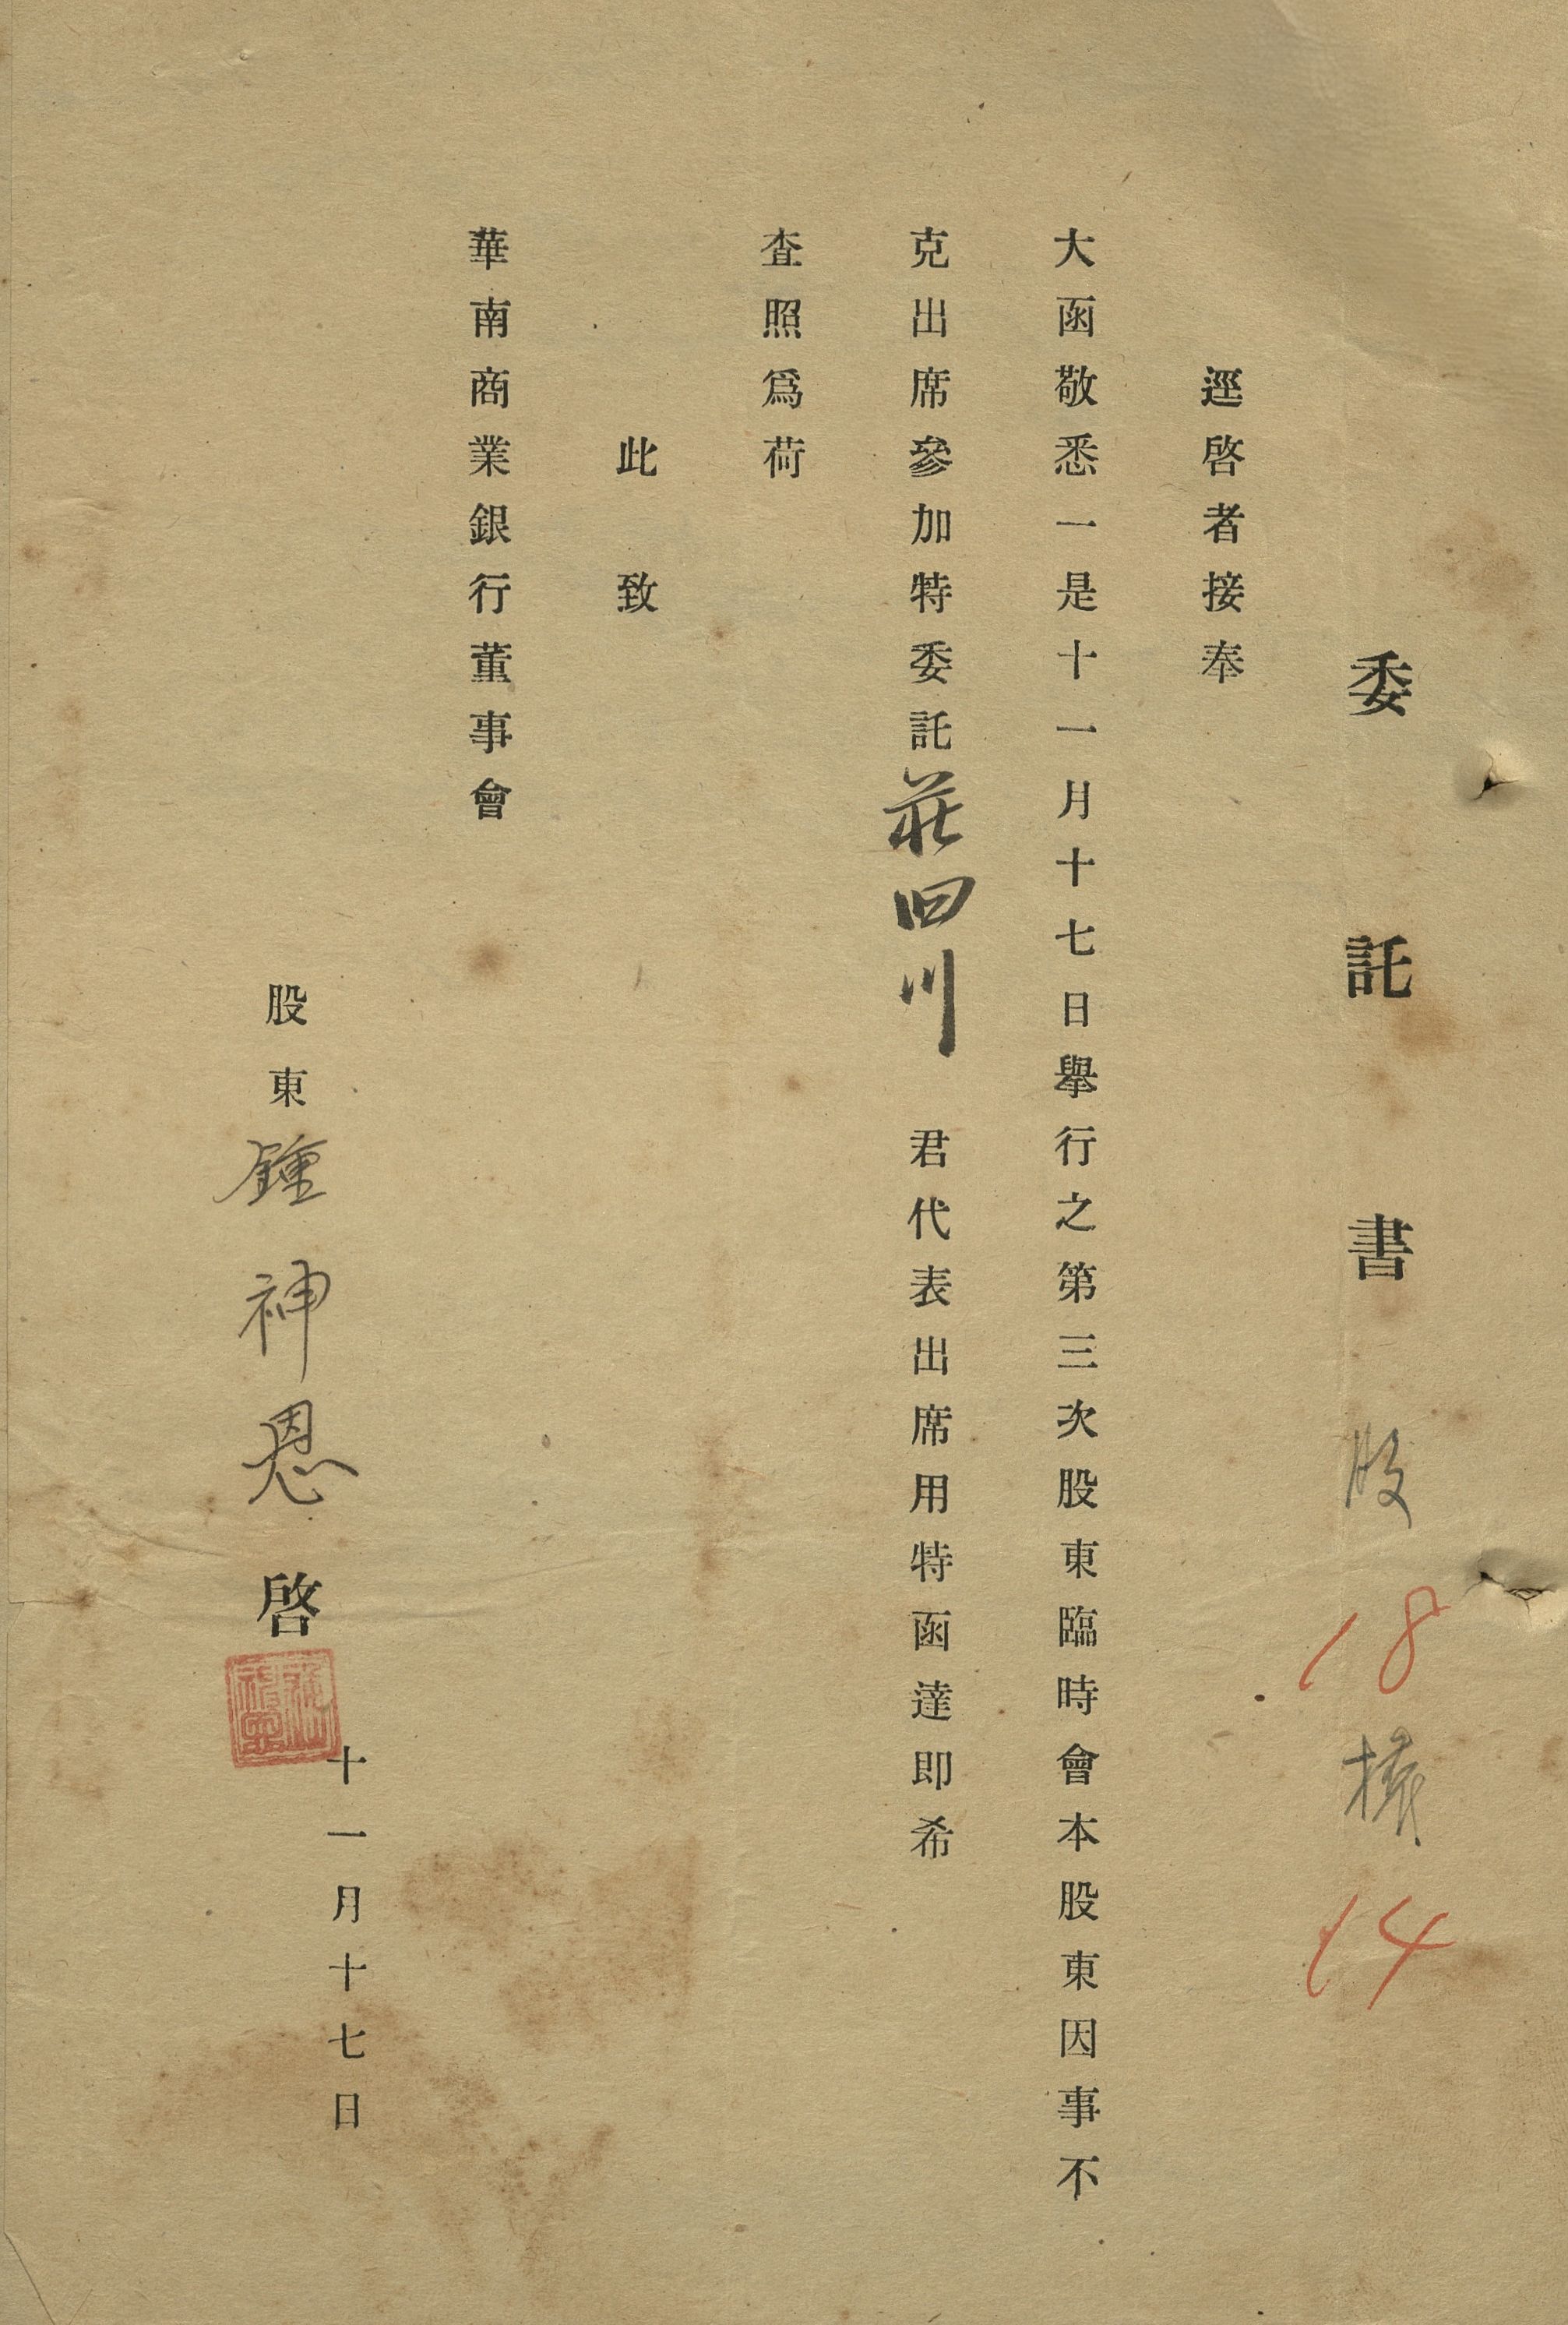 委託書 股 18 權 14
逕啓者接奉
大函敬悉一是十一月十七日舉行之第三次股東臨時會本股東因事不
克出席參加特委託莊四川 君代表出席用特函達即希
查照爲荷
此致
華南商業銀行董事會
股東鍾神恩啓
十一月十七日